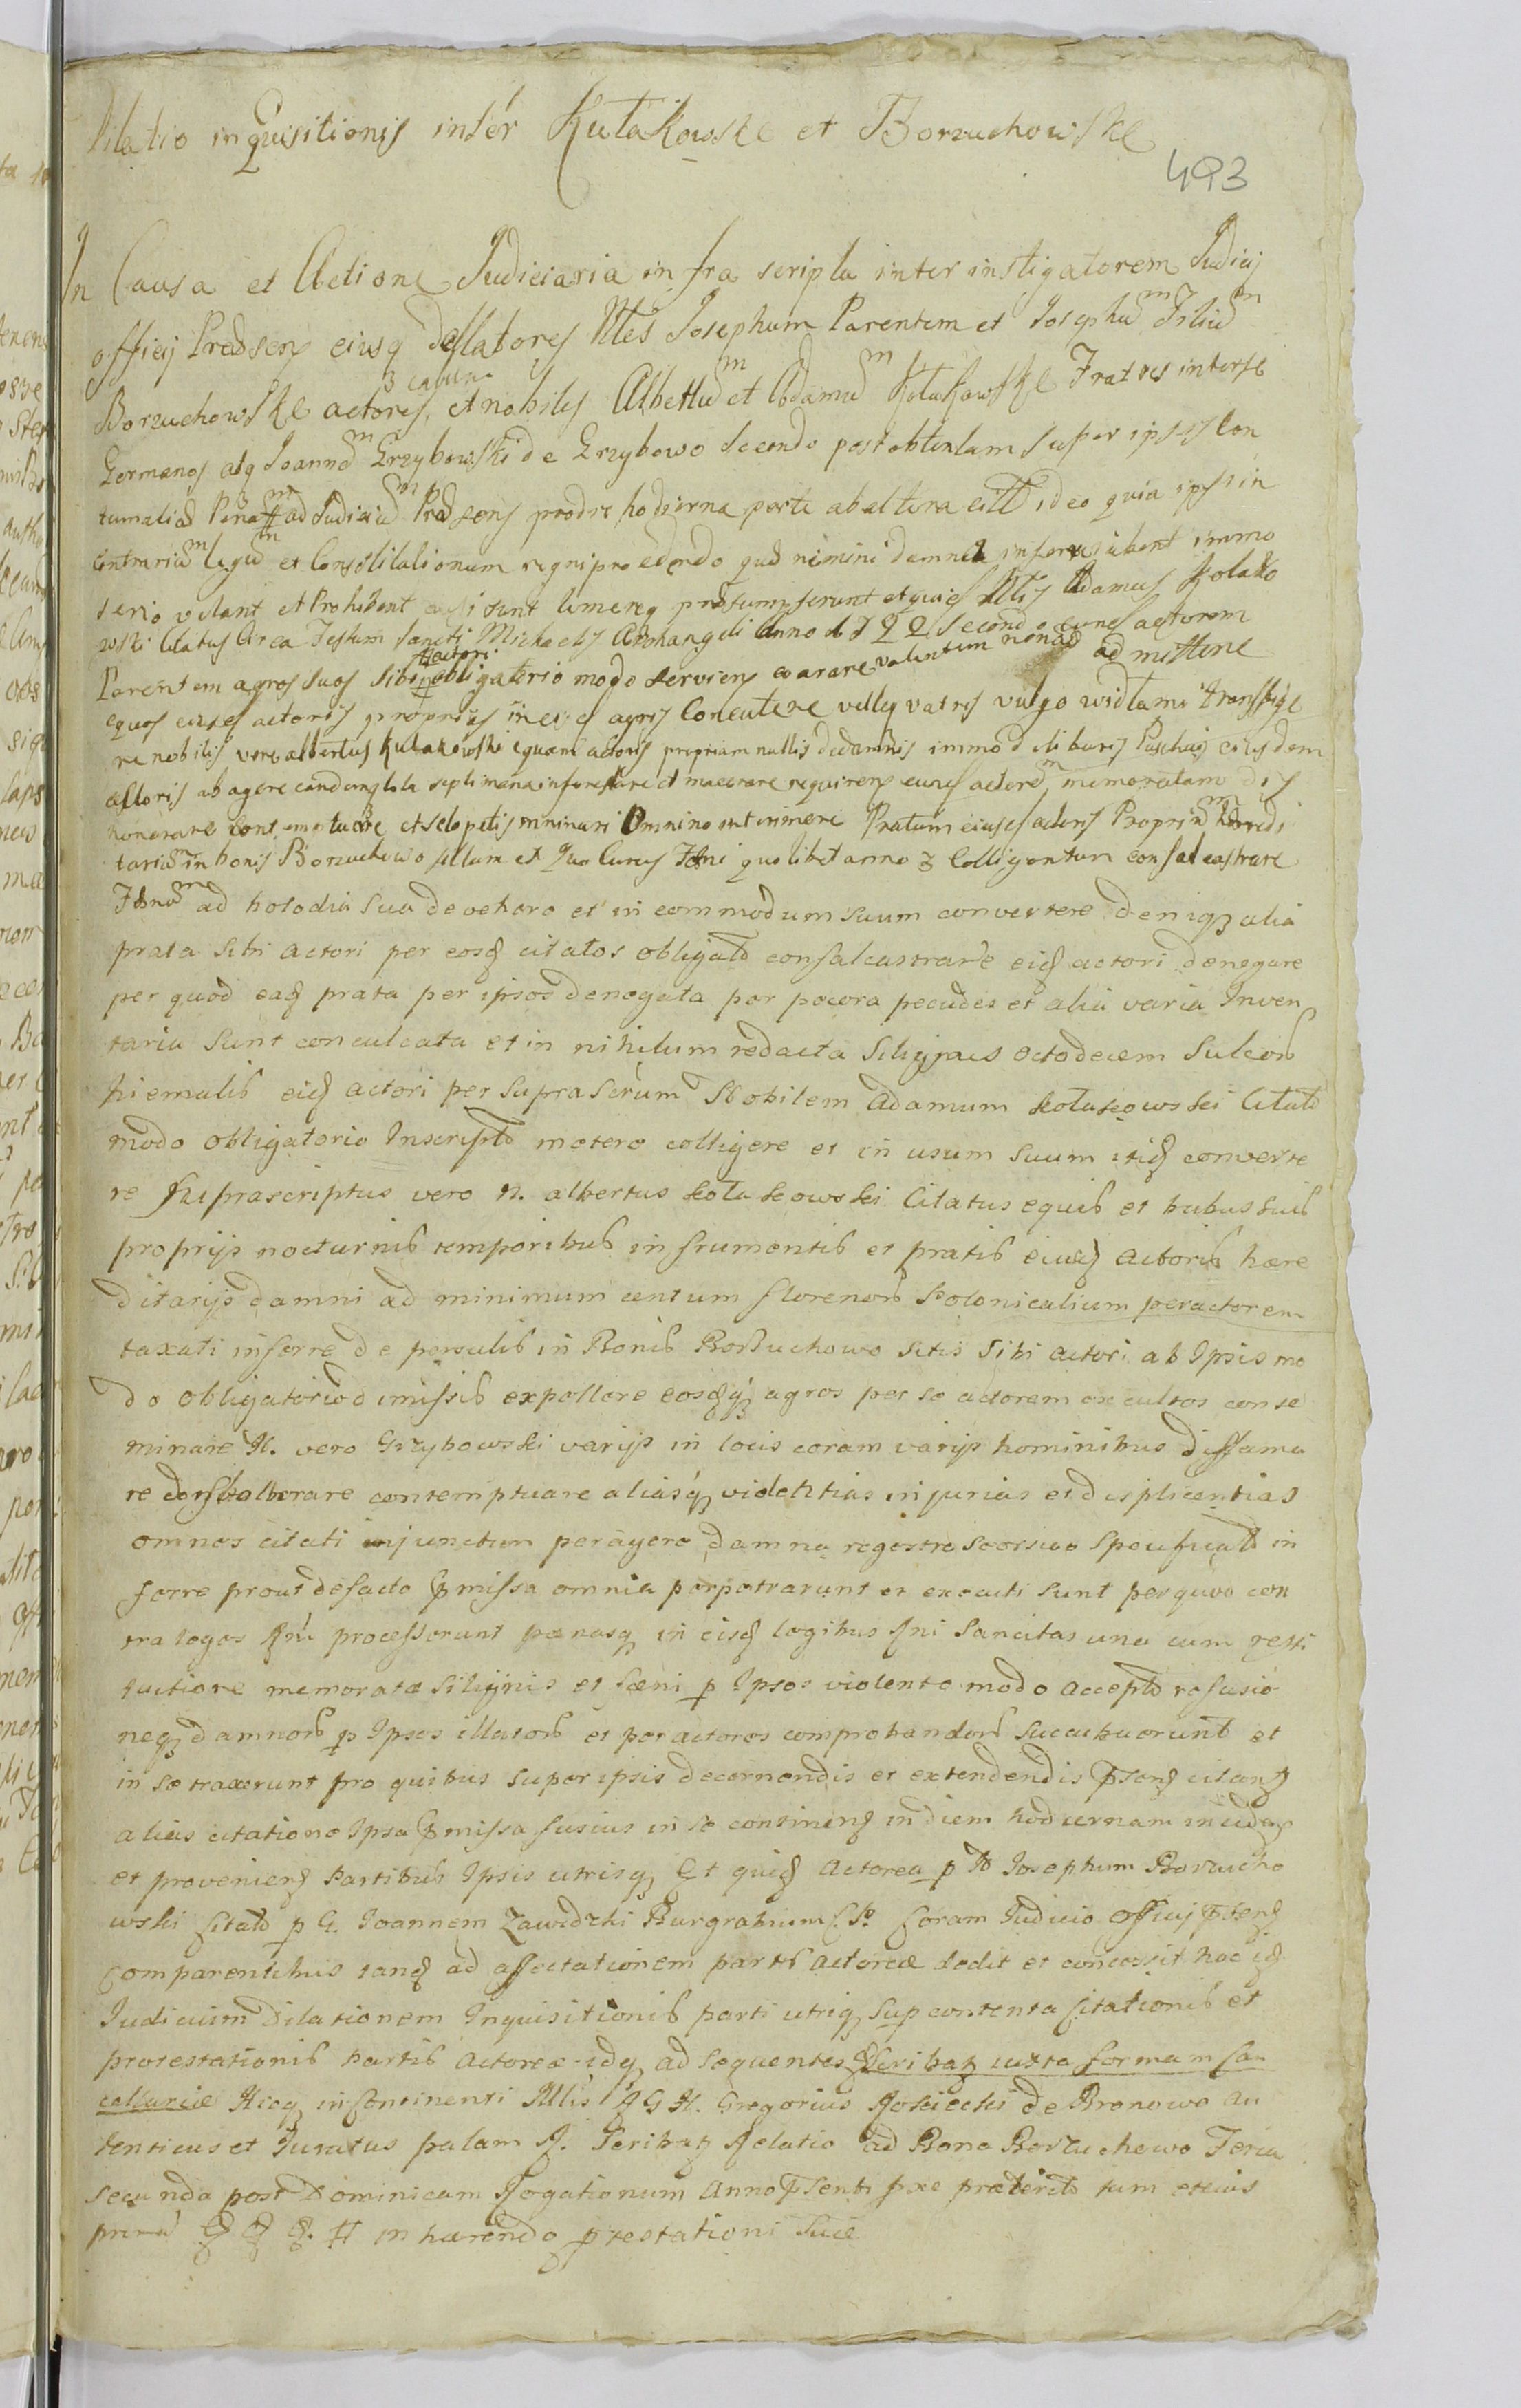 Dilatio inquisitionis inter Kułakowskie et Borzuchowskie
493
In Causa et Actione Judiciaria infra scripta inter instigatorem Judicij
officij Prædsens eiusq dellatores Nles Josephum Parentem et Josephū Filiū
Borzuchowskie actores, et nobiles Albertū et Adamū Kołakowskie Fratres inter se
Germanos atq Joannē Grzybowski de Grzybowo secondo post obtentam super ipsis Con
tumatiā Penā ad Judiciū Præsens prodie hodierna parte ab altera citt ideo quia ipsi in
Contrariū legū et Constitutionum regni procedendo quæ nemini damna inferre iubent immo
serio vetant et Prohibent ausi sunt temereq præsumpserunt et quid Nlis Adamus Kołako
wski Citatus Circa Festum Sancti Michaelis Archangeli Anno 1722 secondo eund actorem
Parentem agros suos sibi actori obligatorio modo serviens exarare valentem non ad mittere
equos eiusd actoris proprios in eisd agris Concutere velleq vatres vulgo widłami transfige
re nobilis vero albertus Kułakowski equam actoris propriam nullis de damnis immo d Paschæ eiusdem
actoris abagere eandemq tota septimana et macerare requirens eund actorē memoratam dis
honorare contemptuare et selopetis minari Omnino interimere Pratum eiusd actoris Propriū heredi
tariū in bonis Borzuchowo situm et quo Currus Feni quolibet anno 3 Colliguntur confalcastrare
Fenū ad horodia sua devehere et in commodum suum convertere deniq3 alia
prata sibi actori per eosd citatos obligatō confalcastrare eid actori denegare
per quod ead prata per ipsos denegata per pecora pecudes et alia varia Inven
taria sunt conculcata et in nihilum redacta Siliginis octodecem Sulcorū
hiemalis eid actori per suprascrum Nobilem Adamum Kołakowski Citatō
modo obligatorio Inscriptō metere colligere et in usum suum itid converte
re Suprascriptus vero N. albertus Kołakowski Citatus equis et bubus suis
proprijs nocturnis temporibus in frumentis et pratis eiusd Actoris hære
ditarijs damni ad minimum centum florenorū Polonicalium per actorem
taxati inferre de persulis in Bonis Borzuchowo sitis sibi actori ab Ipsis mo
do obligatorio dimissis expellere eosdq3 agros per se actorem excultos conse
minare N. vero Grzybowski varijs in locis coram varijs hominibus diffama
re contemptuare aliasq3 violentias injurias et displicentias
omnes citati injunctim peragere damna regestro seorsivo Specificatō in
ferre prout defacto præmissa omnia perpetrarunt et executi sunt per quo con
tra leges Rni processerunt pœnasq in eisd legibus Rni sancitas una cum resti
tuctione memoratæ siliginis et fœni p Ipsos violento modo acceptō refusio
neq3 damnorū p Ipsos illatorū et per actores comprobandorū succubuerunt et
in se traxerunt pro quibus super ipsis decernendis et extendendis præsens citans
alias citatione Ipsa præmissa fusius in se continens in diem hodiernam incidens
et proveniens Partibus Ipsis utrisq Et quid Actorea p N Josephum Borzucho
wski Citatō p G. Joannem Zawidzki Burgrabium Coram Judicio Officij præsens
Comparentibus tand ad affectationem partis actoreæ dedit et concessit hoc id
Judicium Dilationem Inquisitionis parti utriq sup contenta Citationis et
protestationis Partis Actoreæ idq ad sequentes Scribas iuxta formam Can
cellariæ Hicq in Continenti Nllis G N. Gregorius Kosiecki de Bronowo au
tenticus et Juratus palam R. Scribas Relatio ad Bona Borzuchowo Feria
secunda post Dominicam Rogationum Anno præsenti pxe præteritō tum et eius
inhærendo ptestationi suæ